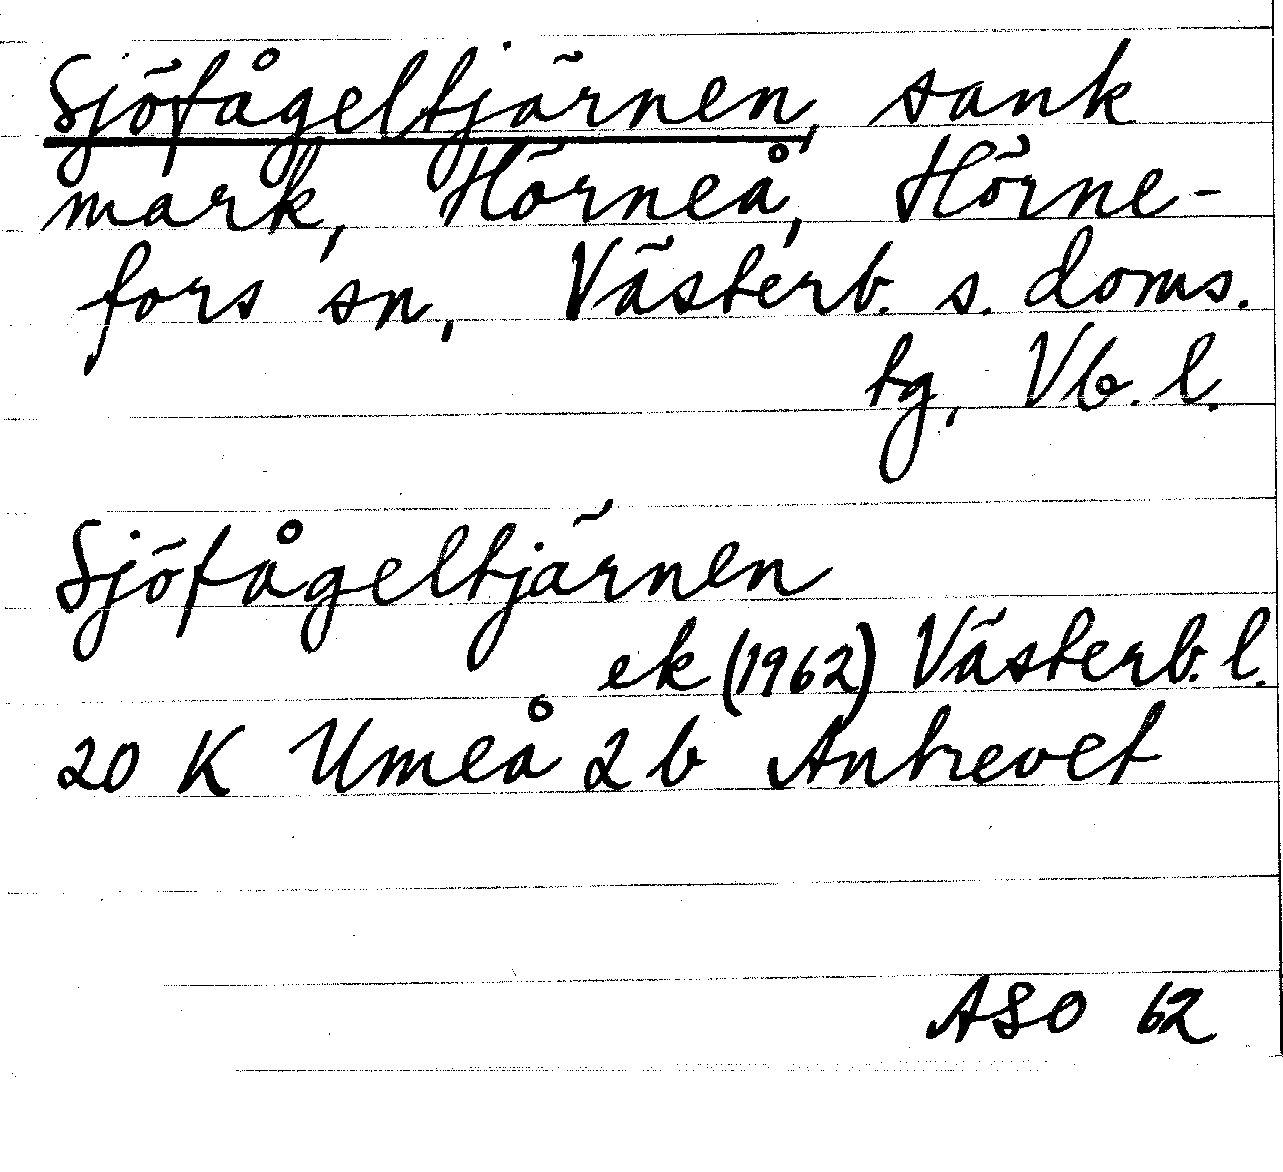 Sjöfågeltjärnen, sank
mark, Hörneå, Hörne-
fors sn, Västerb. s. doms.
tg, Vb. l.
Sjöfågeltjärnen
ek (1962) Västerb. l.
20 K Umeå 2 b Antrevet
ASO 62